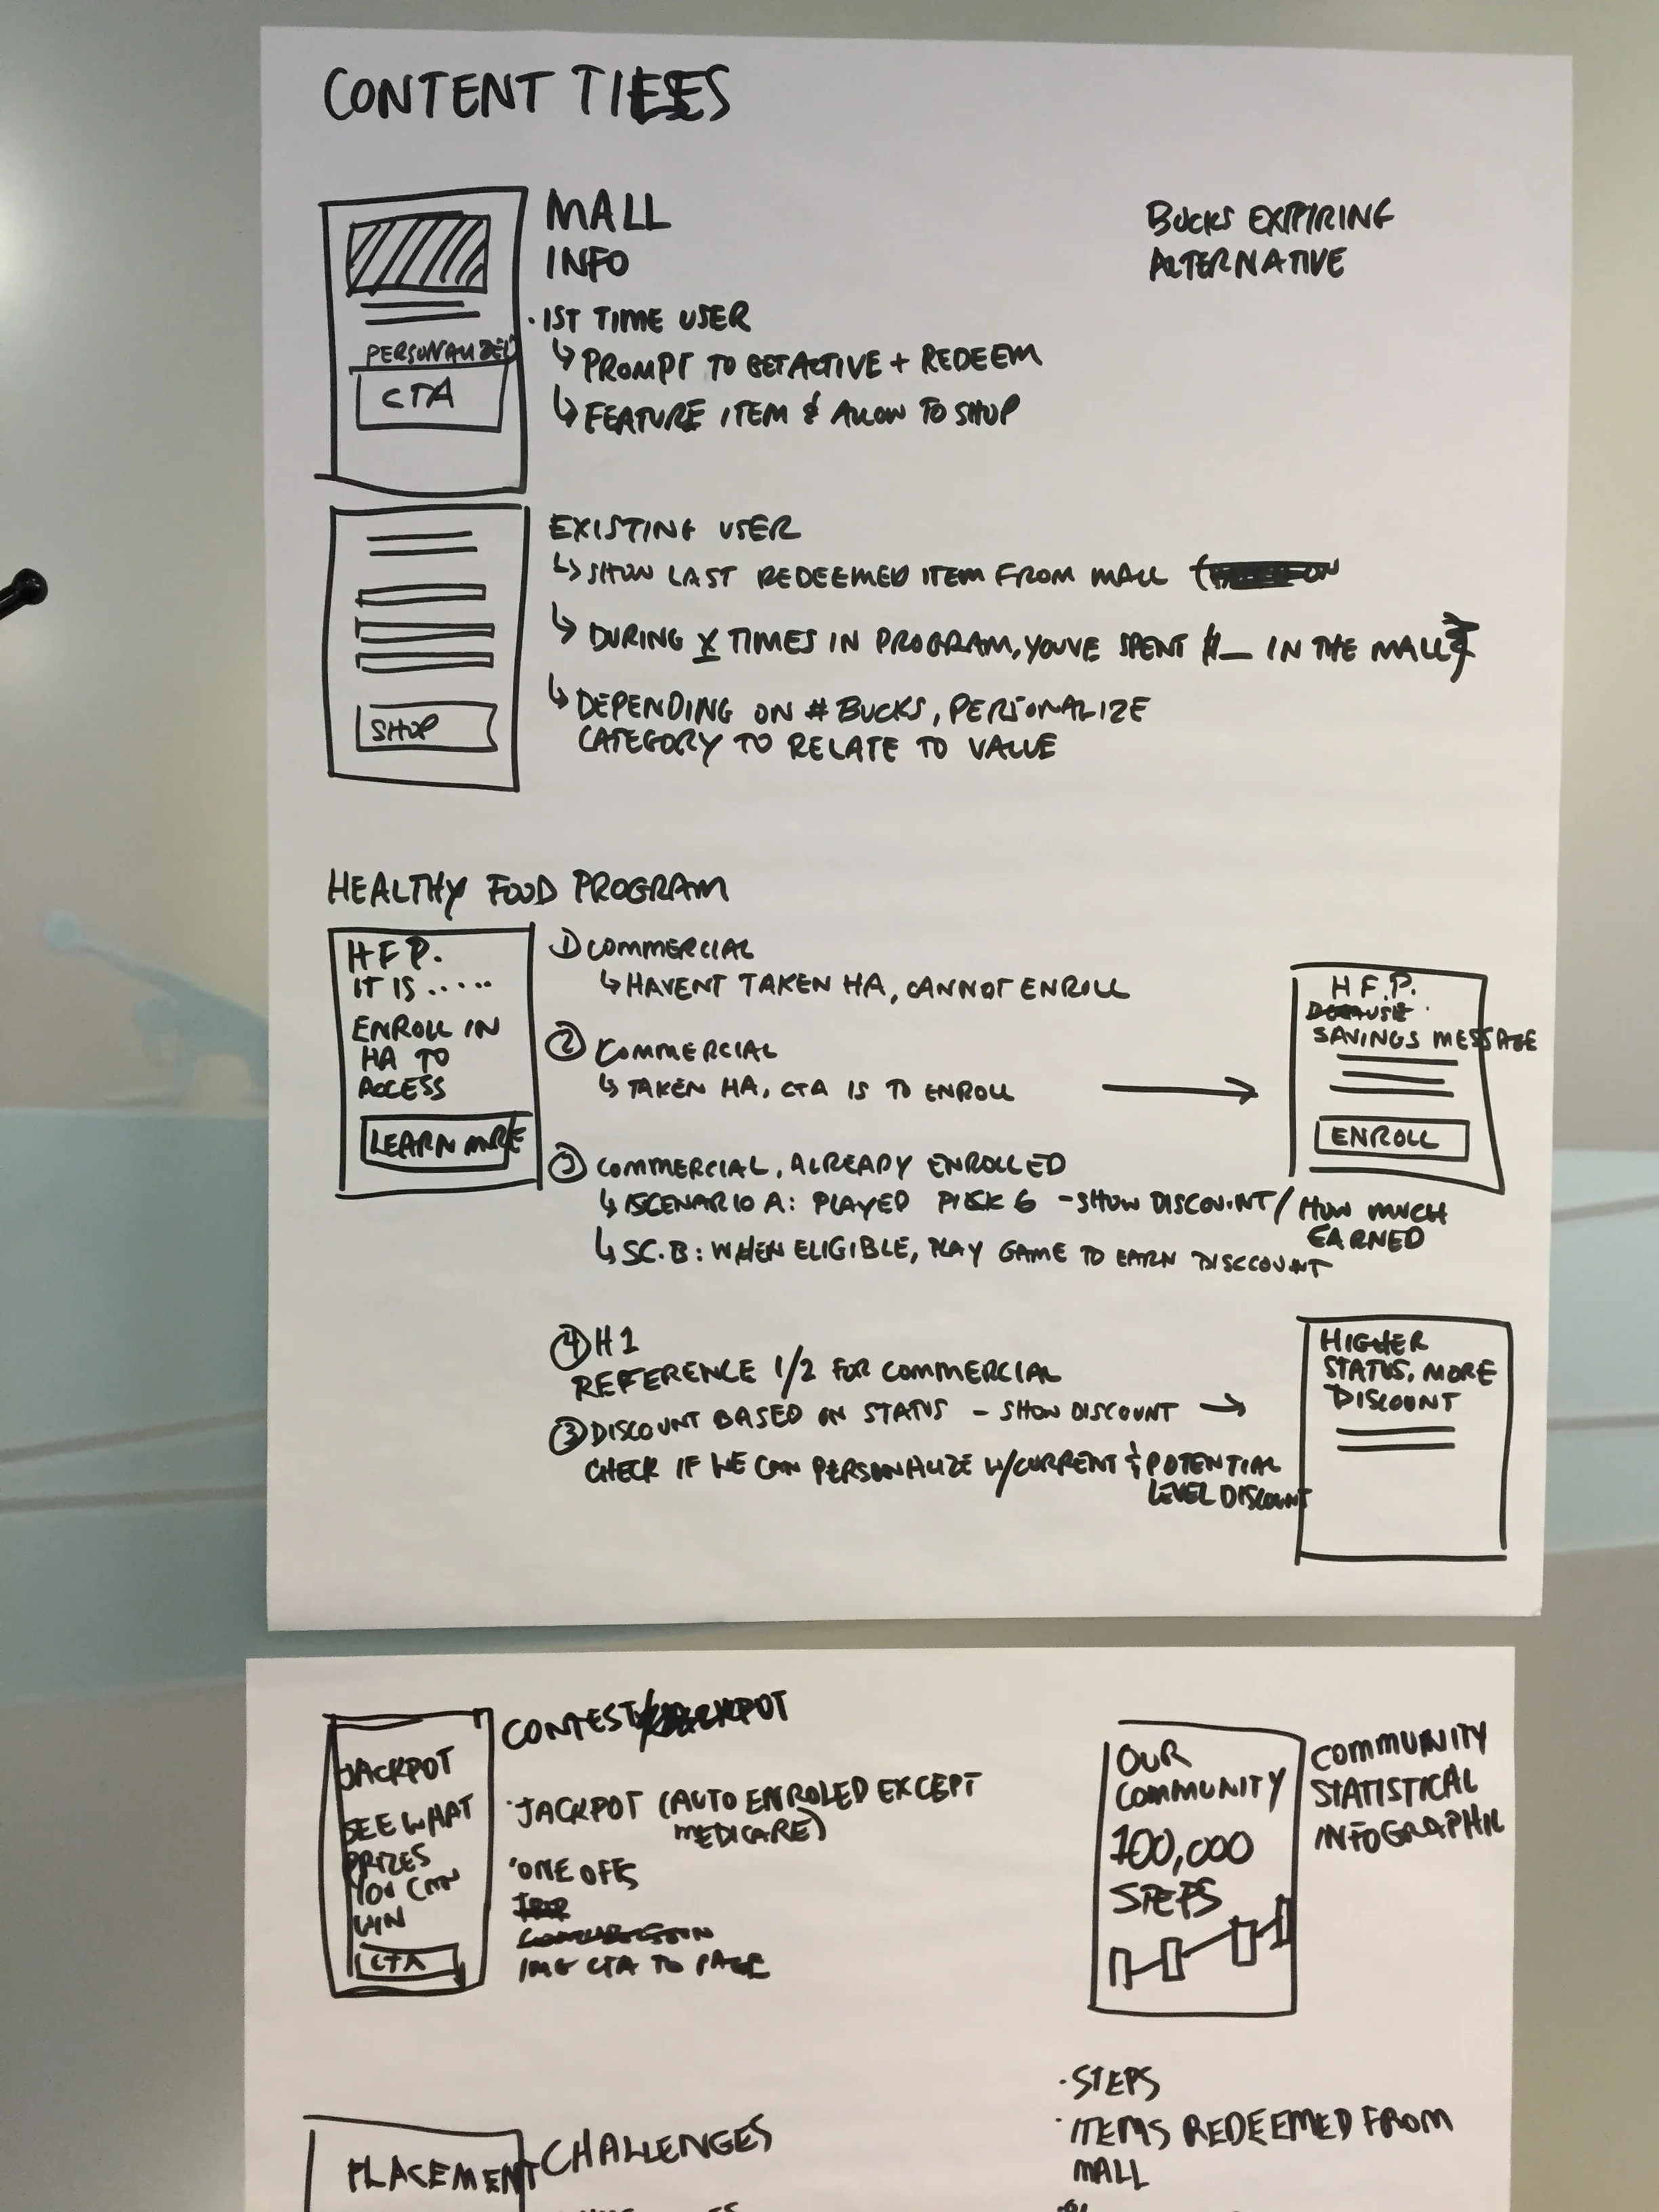 CONTENT TILES
MALL
INFO
BUCKS EXPIRING
ALTERNATIVE
PERSONALIZED
CTA
· 1ST TIME USER
↳ PROMPT TO GET ACTIVE + REDEEM
↳ FEATURE ITEM & ALLOW TO SHOP
EXISTING USER
↳ SHOW LAST REDEEMED ITEM FROM MALL
↳ DURING X TIMES IN PROGRAM, YOUVE SPENT $_ IN THE MALL
↳ DEPENDING ON # BUCKS, PERSONALIZE
CATEGORY TO RELATE TO VALUE
SHOP
HEALTHY FOOD PROGRAM
H F P.
IT IS .....
ENROLL IN
HA TO
ACCESS
LEARN MORE
① COMMERCIAL
↳ HAVENT TAKEN HA, CANNOT ENROLL
② COMMERCIAL
↳ TAKEN HA, CTA IS TO ENROLL →
H F.P.
SAVINGS MESSAGE
ENROLL
③ COMMERCIAL, ALREADY ENROLLED
↳ SCENARIO A: PLAYED PICK 6 - SHOW DISCOUNT / HOW MUCH
EARNED
↳ SC. B: WHEN ELIGIBLE, PLAY GAME TO EARN DISCCOUNT
④ H1
REFERENCE 1/2 FOR COMMERCIAL
③ DISCOUNT BASED ON STATUS - SHOW DISCOUNT →
CHECK IF WE CAN PERSONALIZE W/CURRENT & POTENTIAL
LEVEL DISCOUNT
HIGHER
STATUS, MORE
DISCOUNT
CONTEST/JACKPOT
JACKPOT
SEE WHAT
PRIZES
YOU CAN
WIN
CTA
· JACKPOT (AUTO ENROLED EXCEPT
MEDICARE)
· ONE OFFS
IMG CTA TO PAGE
OUR
COMMUNITY
100,000
STEPS
COMMUNITY
STATISTICAL
INFOGRAPHIC
· STEPS
· ITEMS REDEEMED FROM
MALL
PLACEMENT
CHALLENGES